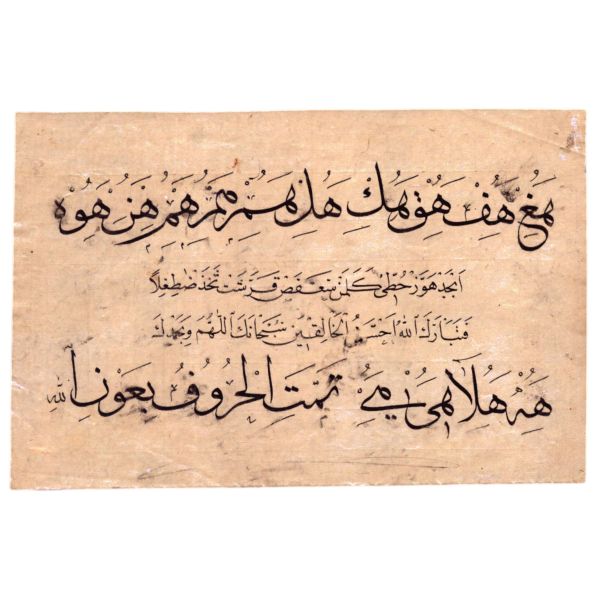 هغ هف هق هك هل هم هم هم هن هو ه
ابجد هوز حطي كلمن سعفص قرشت ثخذ ضظغلا
فتبارك الله احسن الخالقين سبحانك اللهم وبحمدك
هه هلا هي هے تمت الحروف بعون الله